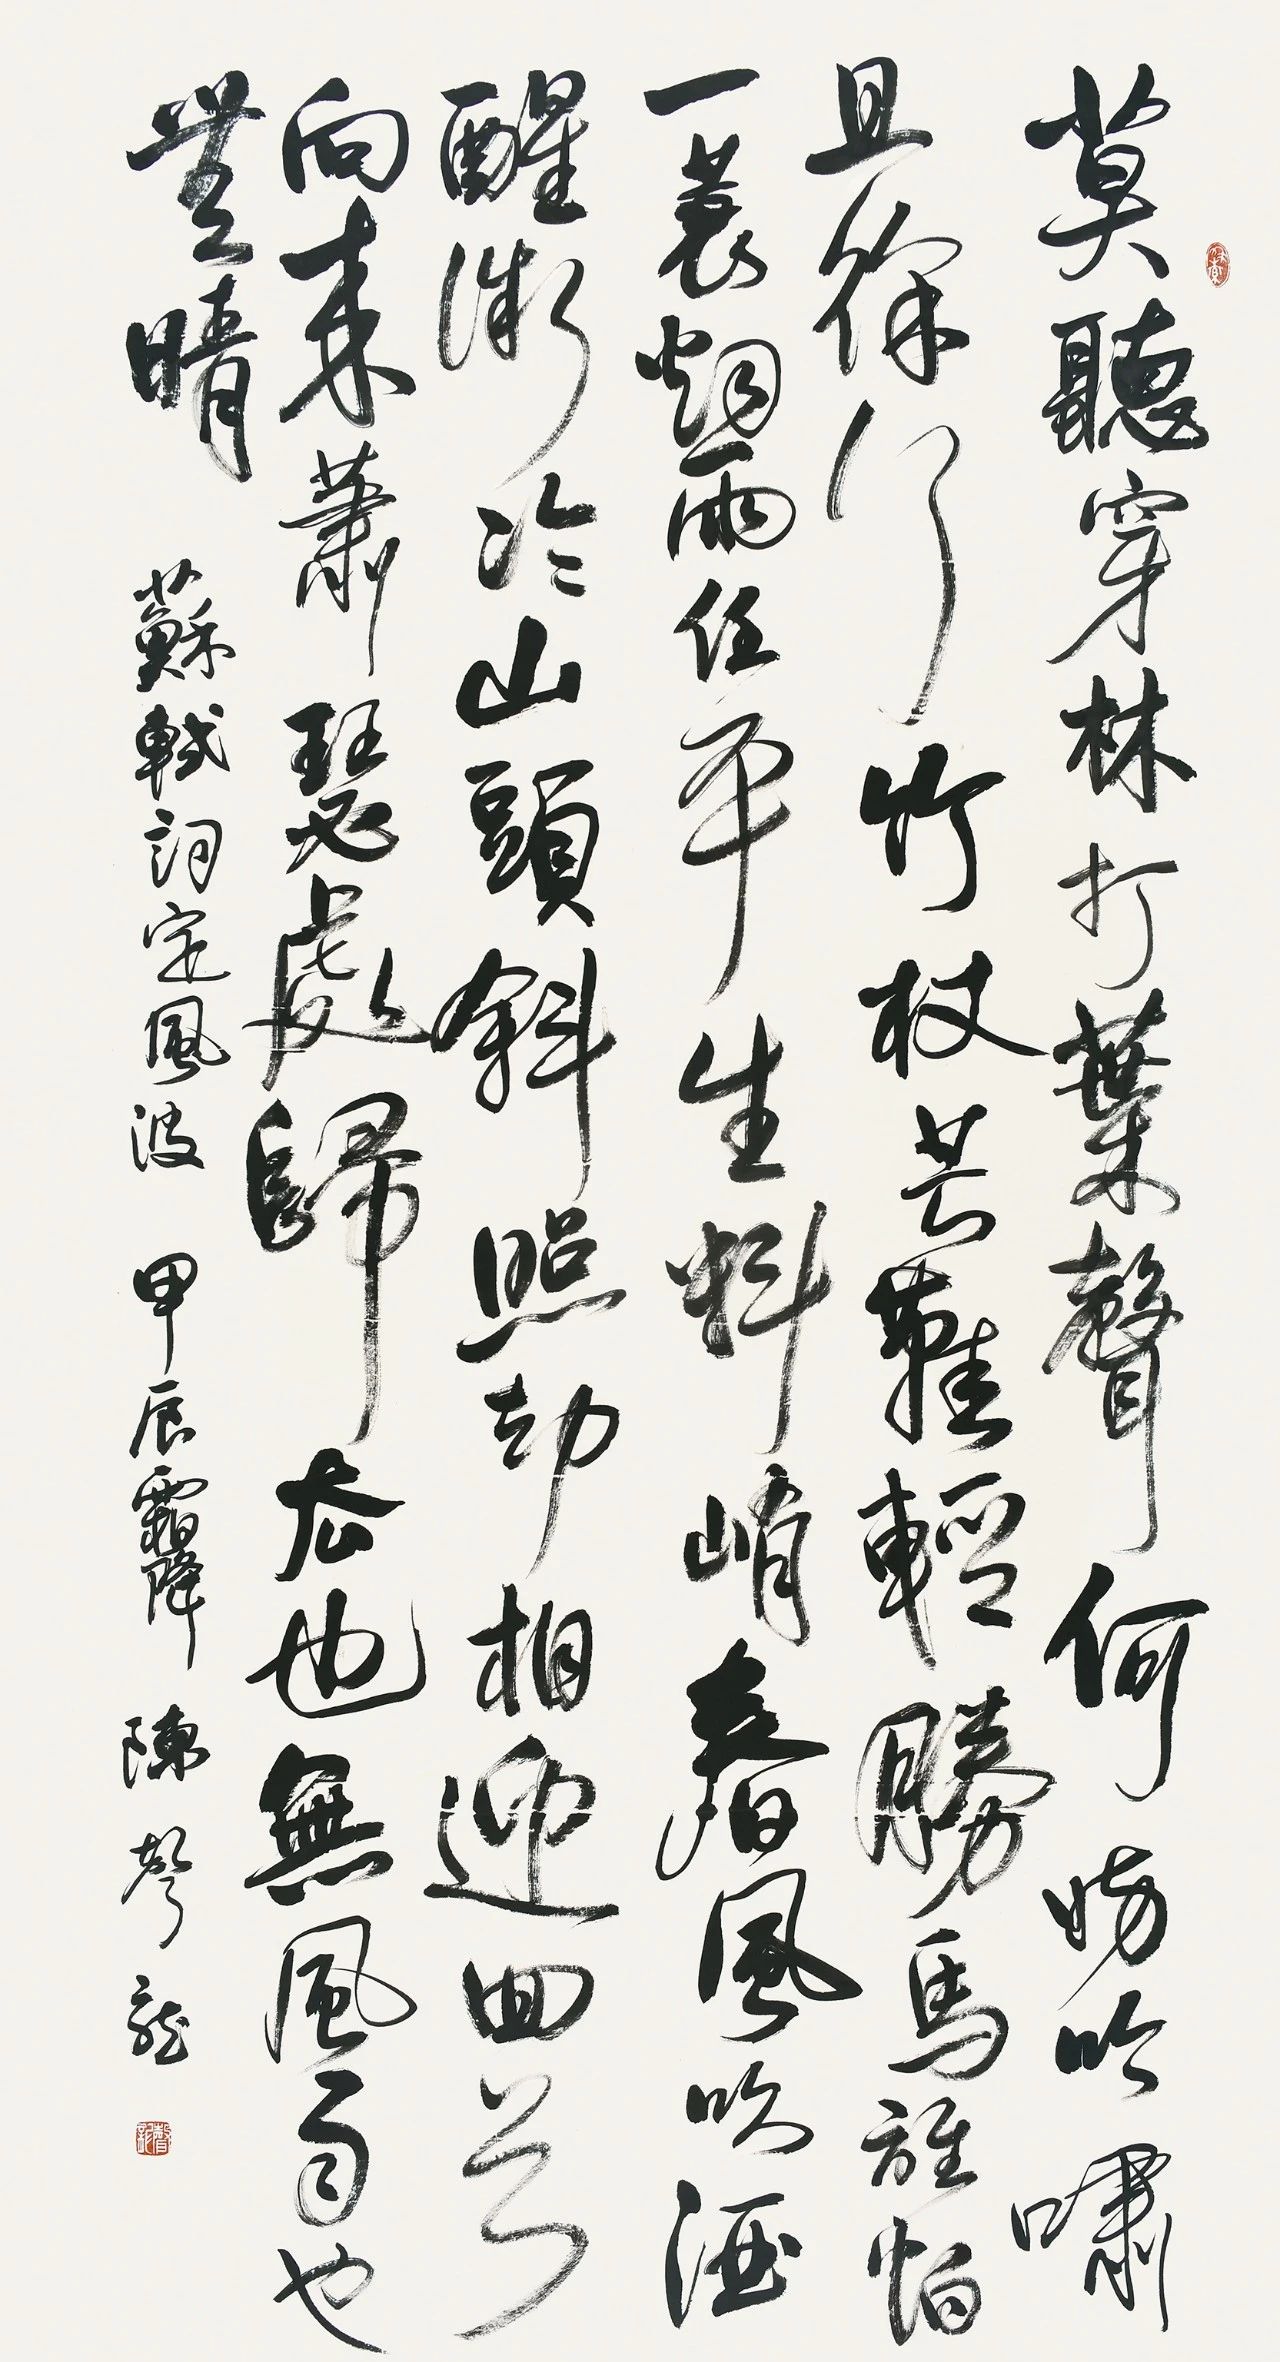 莫聽穿林打葉聲何妨吟嘯
且徐行竹杖芒鞋輕勝馬誰怕
一蓑煙雨任平生料峭春風吹酒
醒微冷山頭斜照却相迎回首
向來蕭瑟處歸去也無風雨也
無晴
蘇軾詞定風波 甲辰霜降 陳聲龍